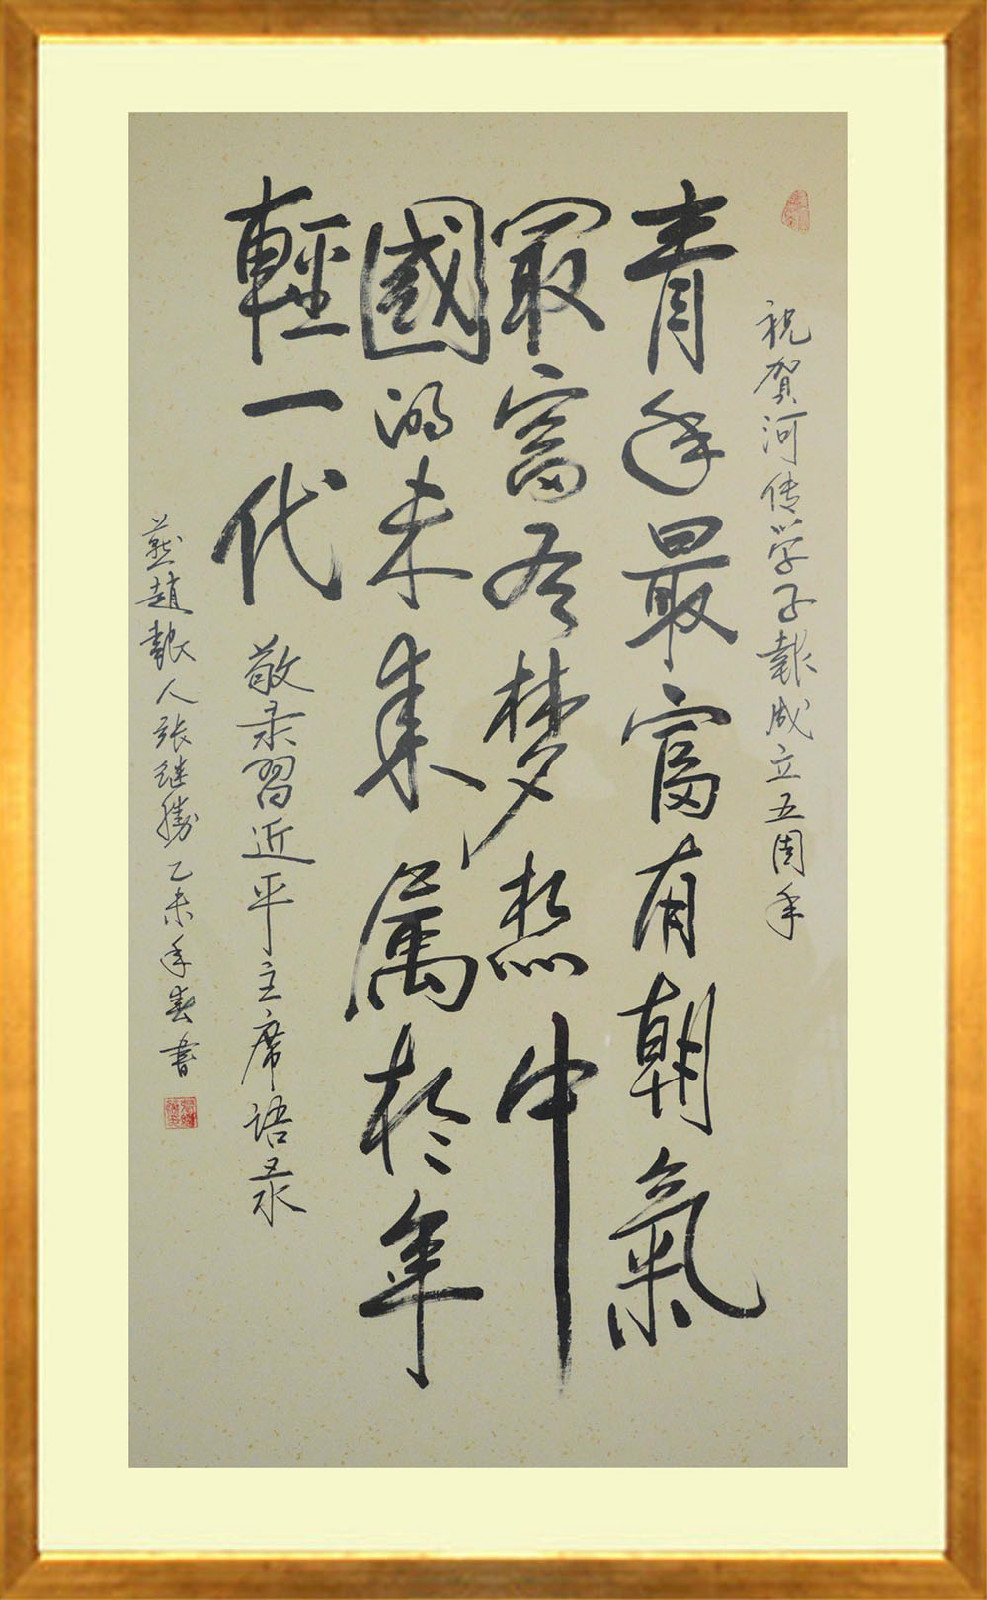 祝贺河传学子報成立五周年
青年最富有朝氣
冣富有梦想中
國的未来属於年
輕一代
敬录習近平主席语录
燕趙報人張继勝乙未年春書